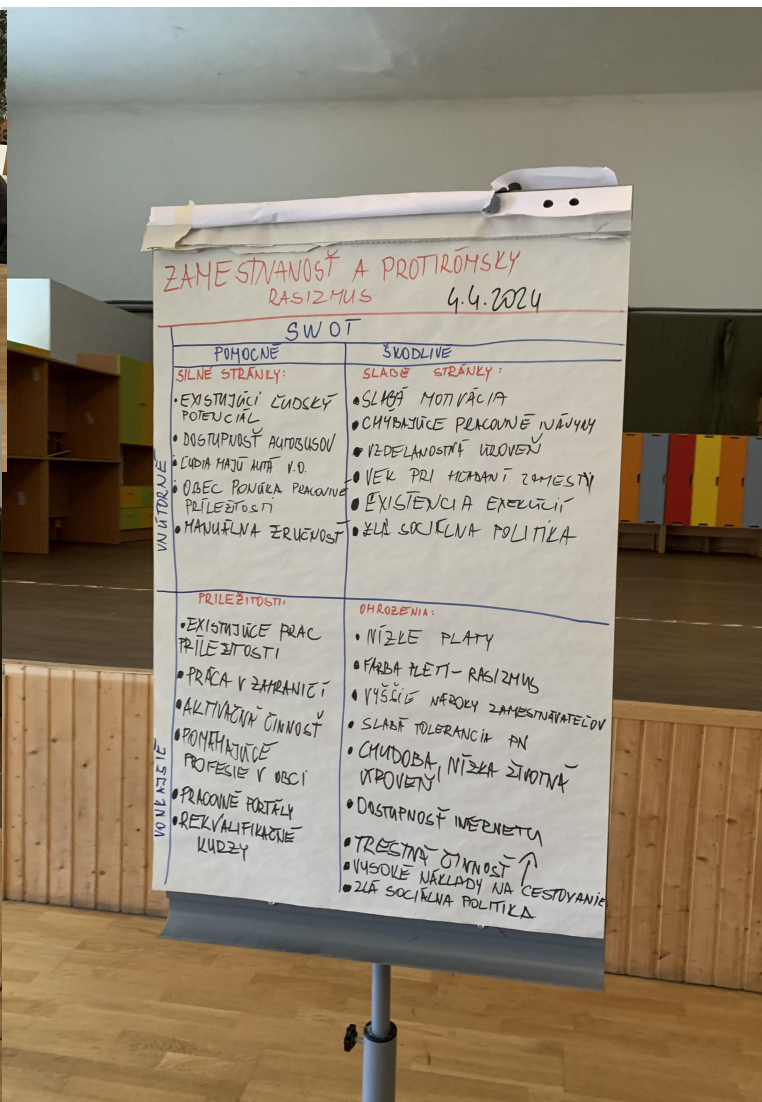 ZAMESTNANOSŤ A PROTIRÓMSKY
RASIZMUS 4.4.2024
SWOT
POMOCNÉ ŠKODLIVÉ
VNÚTORNÉ
SILNÉ STRÁNKY:
• EXISTUJÚCI ĽUDSKÝ
POTENCIÁL
• DOSTUPNOSŤ AUTOBUSOV
• ĽUDIA MAJÚ AUTÁ V.O.
• OBEC PONÚKA PRACOVNÉ
PRÍLEŽITOSTI
• MANUÁLNA ZRUČNOSŤ
SLABÉ STRÁNKY:
• SLABÁ MOTIVÁCIA
• CHÝBAJÚCE PRACOVNÉ NÁVYKY
• VZDELANOSTNÁ ÚROVEŇ
• VEK PRI HĽADANÍ ZAMESTN
• EXISTENCIA EXEKÚCIÍ
• ZLÁ SOCIÁLNA POLITIKA
VONKAJŠIE
PRÍLEŽITOSTI:
• EXISTUJÚCE PRAC
PRÍLEŽITOSTI
• PRÁCA V ZAHRANIČÍ
• AKTIVAČNÁ ČINNOSŤ
• POMÁHAJÚCE
PROFESIE V OBCI
• PRACOVNÉ PORTÁLY
• REKVALIFIKAČNÉ
KURZY
OHROZENIA:
• NÍZKE PLATY
• FARBA PLETI - RASIZMUS
• VYŠŠIE NÁROKY ZAMESTNÁVATEĽOV
• SLABÁ TOLERANCIA PN
• CHUDOBA, NÍZKA ŽIVOTNÁ
ÚROVEŇ
• DOSTUPNOSŤ INERNETU
• TRESTNÁ ČINNOSŤ ↑
• VYSOKÉ NÁKLADY NA CESTOVANIE
• ZLÁ SOCIÁLNA POLITIKA